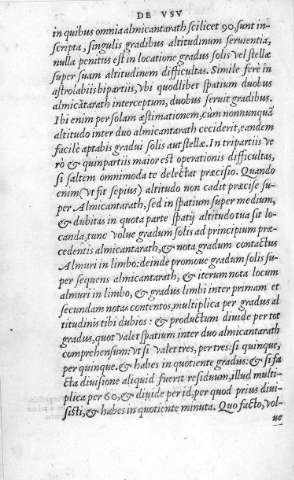 DE VSV
in quibus omnia almicantarath scilicet 90. sunt in-
scripta, singulis gradibus altitudinum seruientia,
nulla penitus est in locatione gradus solis vel stellæ
super suam altitudinem difficultas. Simile ferè in
astrolabiis bipartiis, vbi quodlibet spatium duobus
almicātarath interceptum, duobus seruit gradibus.
Ibi enim per solam æstimationem, cùm nonnunquā
altitudo inter duo almicantarath ceciderit, eandem
facilè aptabis gradui solis aut stellæ. In tripartiis ve
rò & quinpartiis maior est operationis difficultas,
si saltem omnimoda te delectat præcisio. Quando
enim (vt fit sepius) altitudo non cadit præcise su-
per Almicantarath, sed in spatium super medium,
& dubitas in quota parte spatij altitudo tua sit lo-
canda, tunc volue gradum solis ad principium præ-
cedentis almicantarath, & nota gradum contactus
Almuri in limbo: deinde promoue gradum solis su-
per sequens almicantarath, & iterum nota locum
almuri in limbo, & gradus limbi inter primam et
secundam notas contentos, multiplica per gradus al
titudinis tibi dubios: & productum diuide per tot
gradus, quot valet spatium inter duo almicantarath
comprehensum: vt si valet tres, per tres: si quinque,
per quinque. & habes in quotiente gradus: & si fa-
cta diuisione aliquid fuerit residuum, illud multi-
plica per 60, & diuide per id, per quod prius diui-
sisti, & habes in quotiente minuta. Quo facto, vol-
ue